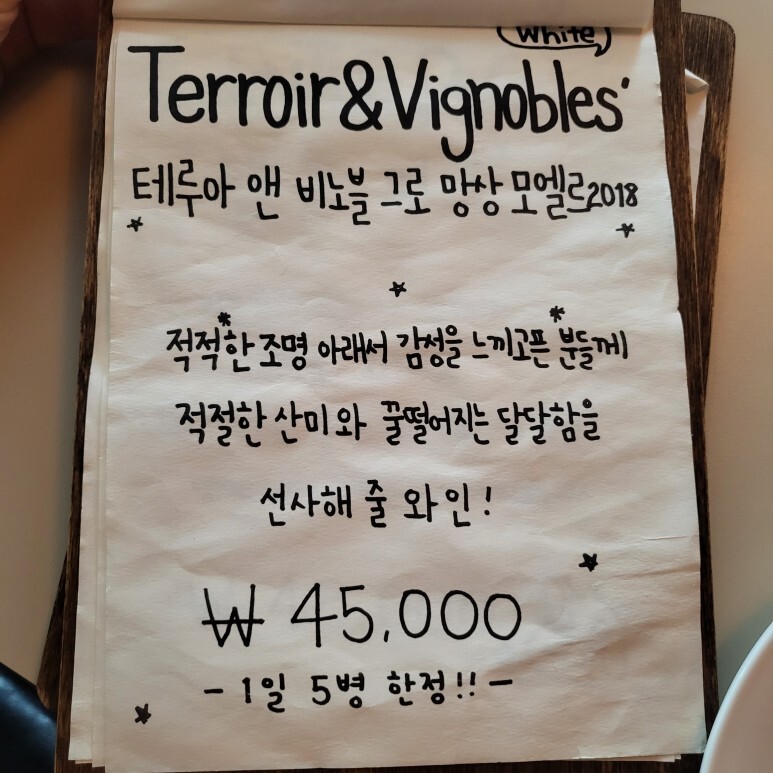 White
Terroir&Vignobles'
테루아 앤 비노블 그로 망상 모엘르2018
적적한 조명 아래서 감성을 느끼고픈 분들께
적절한 산미와 꿀떨어지는 달달함을
선사해 줄 와인!
₩ 45,000
- 1일 5병 한정!! -